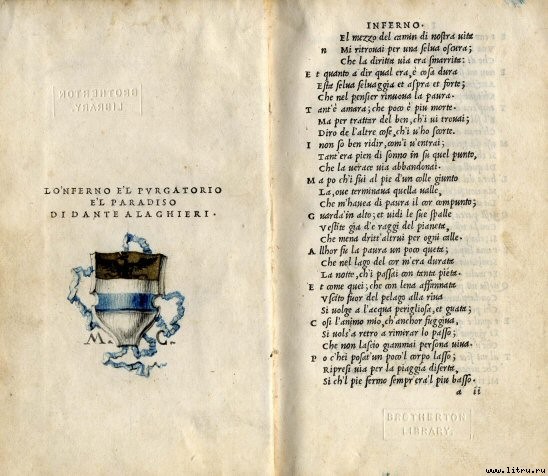 BROTHERTON
LIBRARY.
LO'NFERNO E'L PVRGATORIO
E'L PARADISO
DI DANTE ALAGHIERI.
M. C.
INFERNO.
El mezzo del camin di nostra uita
n Mi ritrouai per una selua oscura;
Che la diritta uia era smarrita:
E t quanto a dir qual era, è cosa dura
Esta selua seluaggia et aspra et forte;
Che nel pensier rinuoua la paura.
T ant'è amara; che poco è piu morte.
Ma per trattar del ben, ch'i ui trouai;
Diro de l'altre cose, ch'i u'ho scorte.
I non so ben ridir, com'i u'entrai;
Tant'era pien di sonno in su quel punto,
Che la uerace uia abbandonai.
M a po ch'i fui al pie d'un colle giunto
La, oue terminaua quella ualle,
Che m'hauea di paura il cor compunto;
G uarda'in alto; et uidi le sue spalle
Vestite gia d'e raggi del pianeta,
Che mena dritt'altrui per ogni calle.
A llhor fu la paura un poco queta;
Che nel lago del cor m'era durata
La notte, ch'i passai con tanta pieta.
E t come quei; che con lena affannata
Vscito fuor del pelago alla riua
Si uolge a l'acqua perigliosa, et guata;
C osi l'animo mio, ch'anchor fuggiua,
Si uols'a retro a rimirar lo passo;
Che non lascio giammai persona uiua.
P o c'hei posat'un poco'l corpo lasso;
Ripresi uia per la piaggia diserta,
Si ch'l pie fermo sempr'era'l piu basso.
a ii
BROTHERTON
LIBRARY.
www.litru.ru